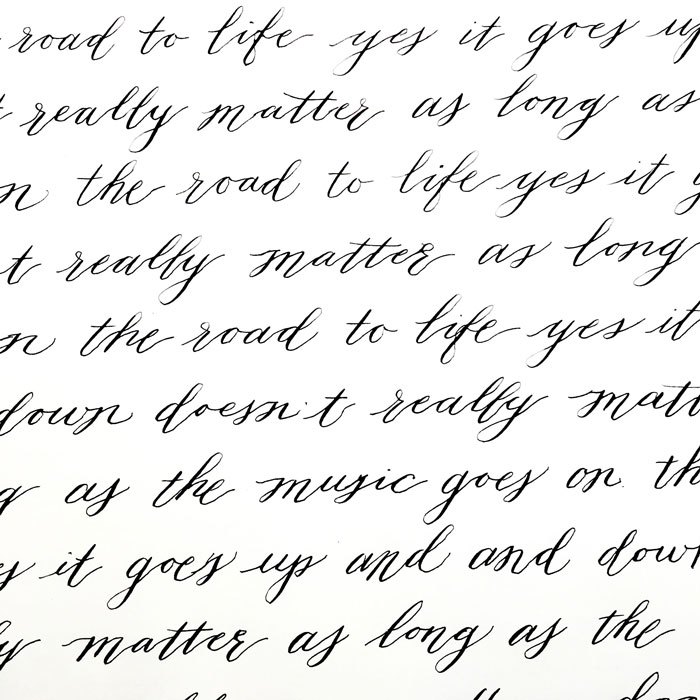 road to life yes it goes up
t really matter as long as
n the road to life yes it
t really matter as long
n the road to life yes it
down doesn't really matt
g as the music goes on th
es it goes up and and down
ly matter as long as the